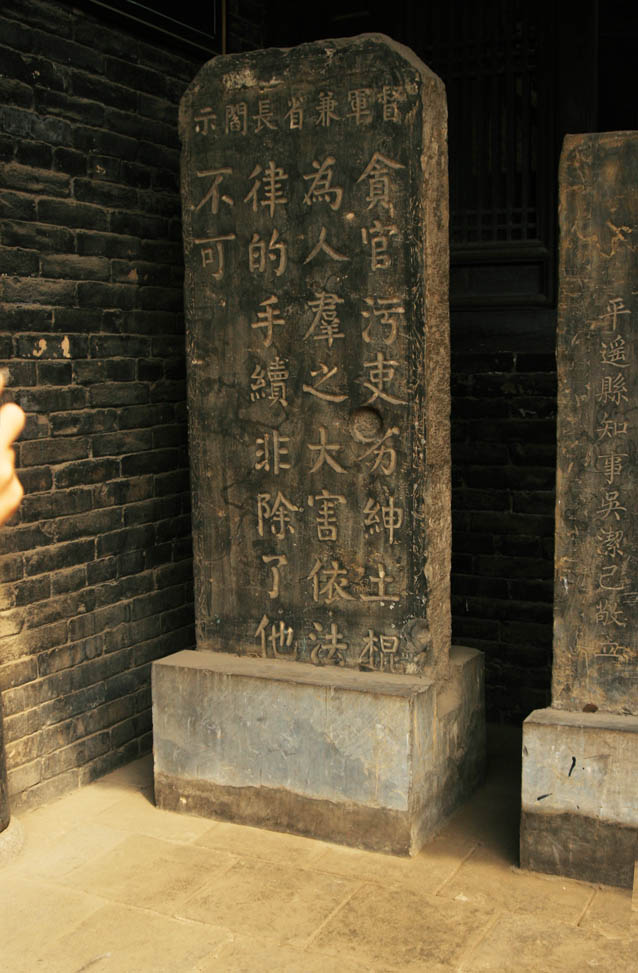 督軍兼省長閻示
貪官污吏劣紳土棍
為人羣之大害依法
律的手續非除了他
不可
平遥縣知事吳潔己敬立